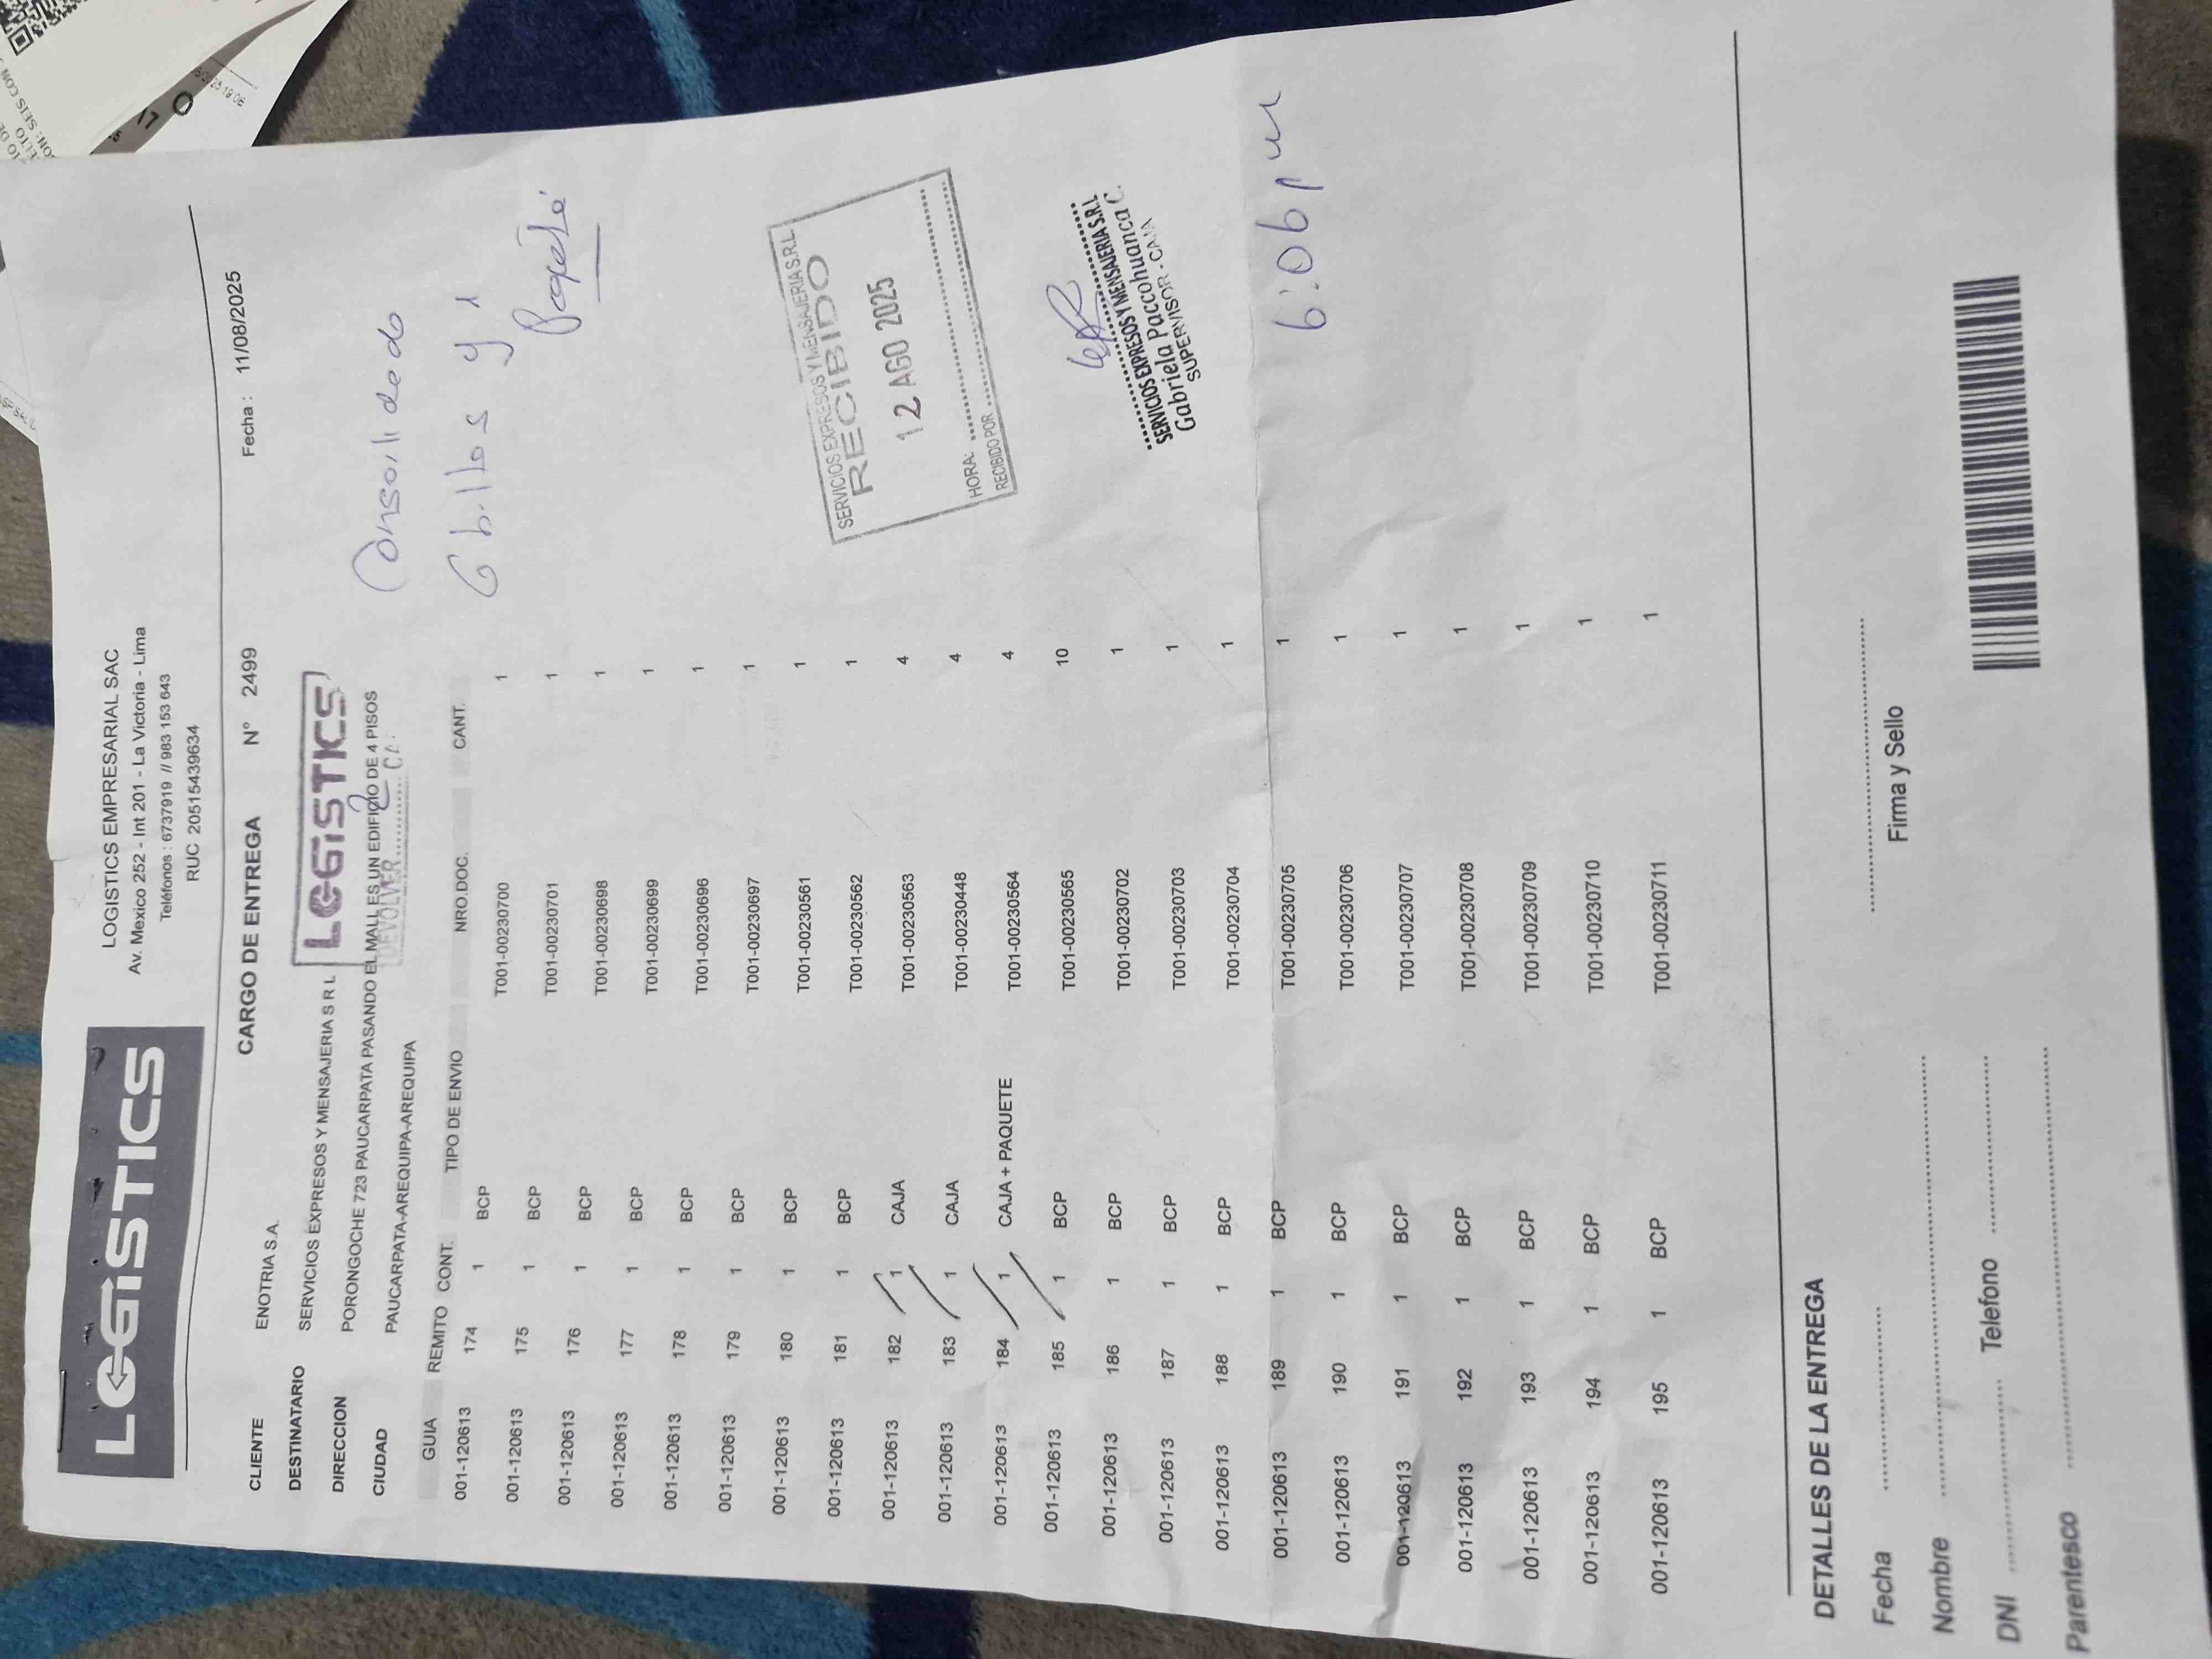 LOGISTICS
LOGISTICS EMPRESARIAL SAC
Av. Mexico 252 - Int 201 - La Victoria - Lima
Teléfonos : 6737919 // 983 153 643
RUC 20515439634
CARGO DE ENTREGA N° 2499 Fecha : 11/08/2025
CLIENTE ENOTRIA S.A.
DESTINATARIO SERVICIOS EXPRESOS Y MENSAJERIA S R L
LOGISTICS
DIRECCION PORONGOCHE 723 PAUCARPATA PASANDO EL MALL ES UN EDIFICIO DE 4 PISOS
DEVOLVER
CIUDAD PAUCARPATA-AREQUIPA-AREQUIPA
Consolidado
6 billos y 1
Paquete
GUIA REMITO CONT. TIPO DE ENVIO NRO.DOC. CANT.
001-120613 174 1 BCP T001-00230700 1
001-120613 175 1 BCP T001-00230701 1
001-120613 176 1 BCP T001-00230698 1
001-120613 177 1 BCP T001-00230699 1
001-120613 178 1 BCP T001-00230696 1
001-120613 179 1 BCP T001-00230697 1
001-120613 180 1 BCP T001-00230561 1
001-120613 181 1 BCP T001-00230562 1
001-120613 182 1 CAJA T001-00230563 4
001-120613 183 1 CAJA T001-00230448 4
001-120613 184 1 CAJA + PAQUETE T001-00230564 4
001-120613 185 1 BCP T001-00230565 10
001-120613 186 1 BCP T001-00230702 1
001-120613 187 1 BCP T001-00230703 1
001-120613 188 1 BCP T001-00230704 1
001-120613 189 1 BCP T001-00230705 1
001-120613 190 1 BCP T001-00230706 1
001-120613 191 1 BCP T001-00230707 1
001-120613 192 1 BCP T001-00230708 1
001-120613 193 1 BCP T001-00230709 1
001-120613 194 1 BCP T001-00230710 1
001-120613 195 1 BCP T001-00230711 1
SERVICIOS EXPRESOS Y MENSAJERIA S.R.L
RECIBIDO
12 AGO 2025
HORA:
RECIBIDO POR
SERVICIOS EXPRESOS Y MENSAJERIA S.R.L
Gabriela Paccohuanca C.
SUPERVISOR - CAJA
6:06 pm
DETALLES DE LA ENTREGA
Fecha
Nombre
DNI Telefono
Parentesco
Firma y Sello